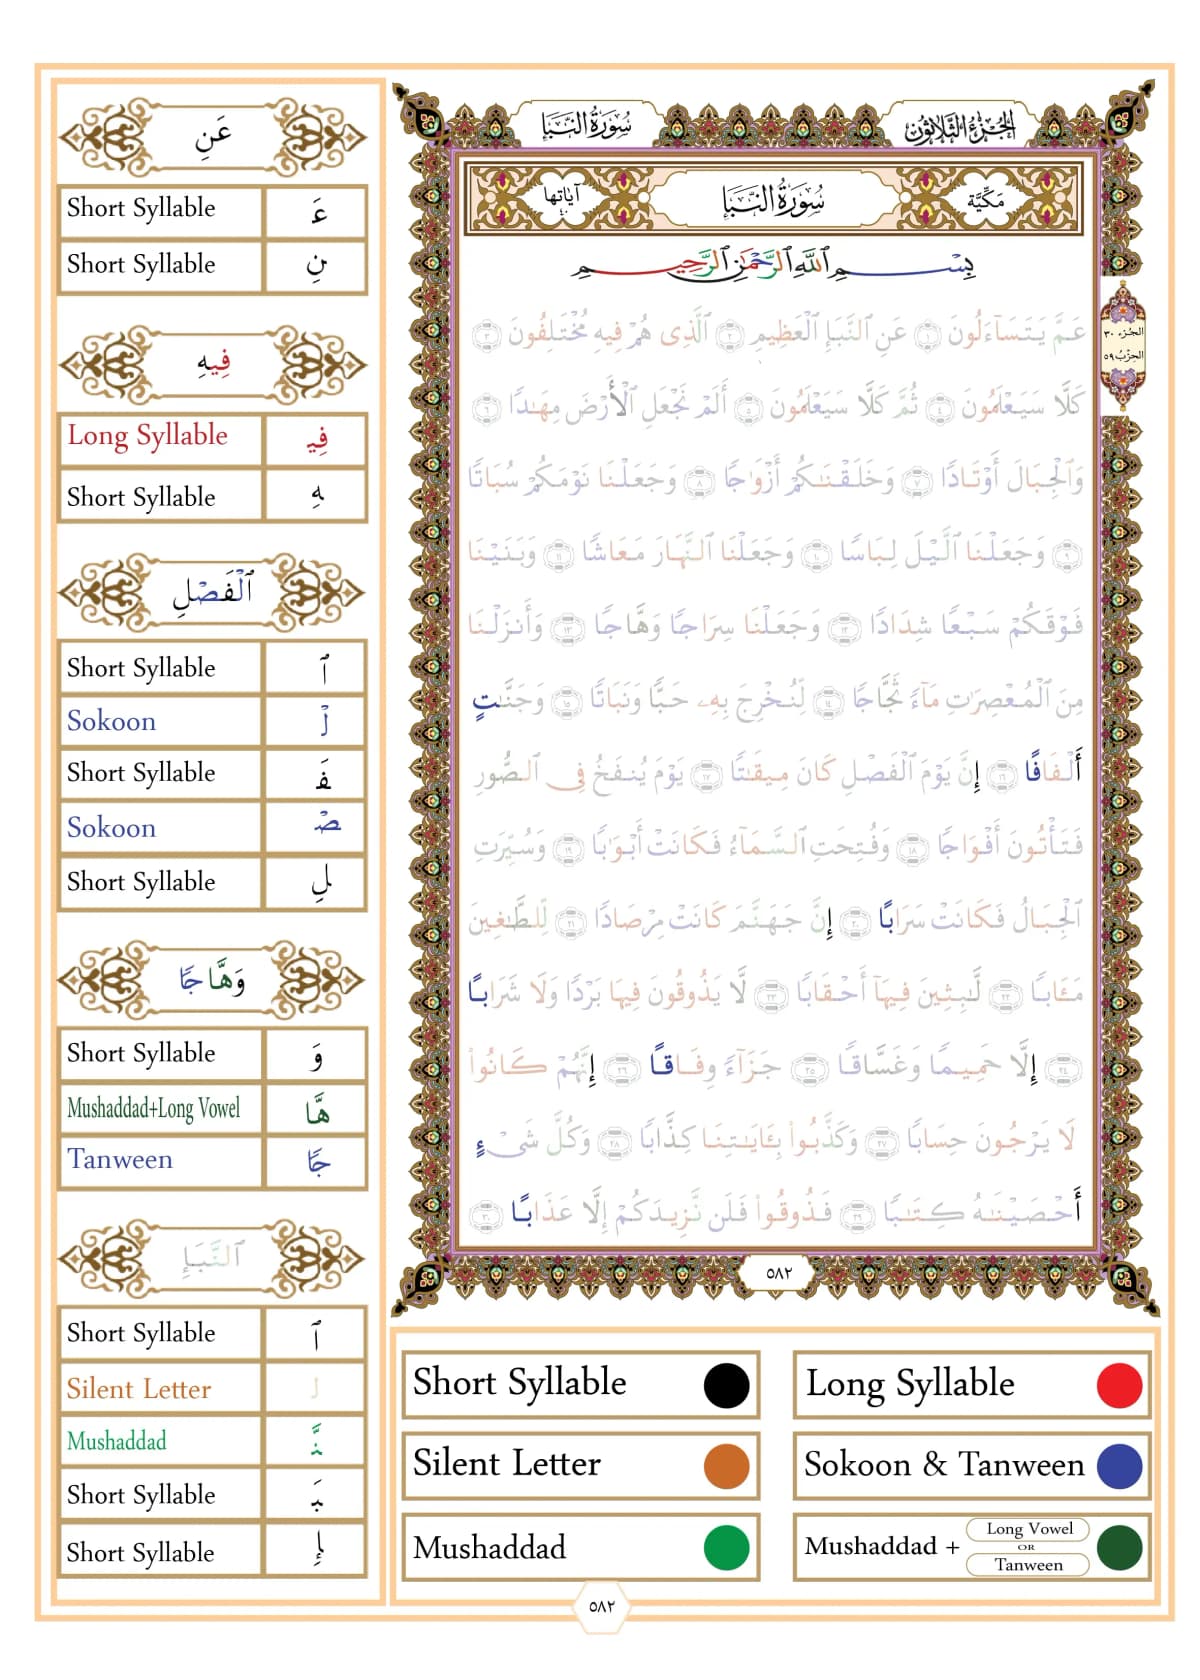 الجزء الثلاثون
سورة النبإ
مكية
سورة النبإ
آياتها ٤٠
بِسْمِ ٱللَّهِ ٱلرَّحْمَٰنِ ٱلرَّحِيمِ
عَمَّ يَتَسَآءَلُونَ ١ عَنِ ٱلنَّبَإِ ٱلْعَظِيمِ ٢ ٱلَّذِى هُمْ فِيهِ مُخْتَلِفُونَ ٣
كَلَّا سَيَعْلَمُونَ ٤ ثُمَّ كَلَّا سَيَعْلَمُونَ ٥ أَلَمْ نَجْعَلِ ٱلْأَرْضَ مِهَٰدًا ٦
وَٱلْجِبَالَ أَوْتَادًا ٧ وَخَلَقْنَٰكُمْ أَزْوَٰجًا ٨ وَجَعَلْنَا نَوْمَكُمْ سُبَاتًا
٩ وَجَعَلْنَا ٱلَّيْلَ لِبَاسًا ١٠ وَجَعَلْنَا ٱلنَّهَارَ مَعَاشًا ١١ وَبَنَيْنَا
فَوْقَكُمْ سَبْعًا شِدَادًا ١٢ وَجَعَلْنَا سِرَاجًا وَهَّاجًا ١٣ وَأَنزَلْنَا
مِنَ ٱلْمُعْصِرَٰتِ مَآءً ثَجَّاجًا ١٤ لِّنُخْرِجَ بِهِۦ حَبًّا وَنَبَاتًا ١٥ وَجَنَّٰتٍ
أَلْفَافًا ١٦ إِنَّ يَوْمَ ٱلْفَصْلِ كَانَ مِيقَٰتًا ١٧ يَوْمَ يُنفَخُ فِى ٱلصُّورِ
فَتَأْتُونَ أَفْوَاجًا ١٨ وَفُتِحَتِ ٱلسَّمَآءُ فَكَانَتْ أَبْوَٰبًا ١٩ وَسُيِّرَتِ
ٱلْجِبَالُ فَكَانَتْ سَرَابًا ٢٠ إِنَّ جَهَنَّمَ كَانَتْ مِرْصَادًا ٢١ لِّلطَّٰغِينَ
مَـَٔابًا ٢٢ لَّٰبِثِينَ فِيهَآ أَحْقَابًا ٢٣ لَّا يَذُوقُونَ فِيهَا بَرْدًا وَلَا شَرَابًا
٢٤ إِلَّا حَمِيمًا وَغَسَّاقًا ٢٥ جَزَآءً وِفَاقًا ٢٦ إِنَّهُمْ كَانُوا۟
لَا يَرْجُونَ حِسَابًا ٢٧ وَكَذَّبُوا۟ بِـَٔايَٰتِنَا كِذَّابًا ٢٨ وَكُلَّ شَىْءٍ
أَحْصَيْنَٰهُ كِتَٰبًا ٢٩ فَذُوقُوا۟ فَلَن نَّزِيدَكُمْ إِلَّا عَذَابًا ٣٠
الجزء ٣٠
الحزب ٥٩
٥٨٢
عَنِ
Short Syllable عَ
Short Syllable نِ
فِيهِ
Long Syllable فِي
Short Syllable هِ
ٱلْفَصْلِ
Short Syllable ٱ
Sokoon لْ
Short Syllable فَ
Sokoon صْ
Short Syllable لِ
وَهَّاجًا
Short Syllable وَ
Mushaddad+Long Vowel هَّا
Tanween جًا
ٱلنَّبَإِ
Short Syllable ٱ
Silent Letter ل
Mushaddad نَّ
Short Syllable بَ
Short Syllable إِ
Short Syllable
Long Syllable
Silent Letter
Sokoon & Tanween
Mushaddad
Mushaddad + Long Vowel OR Tanween
٥٨٢